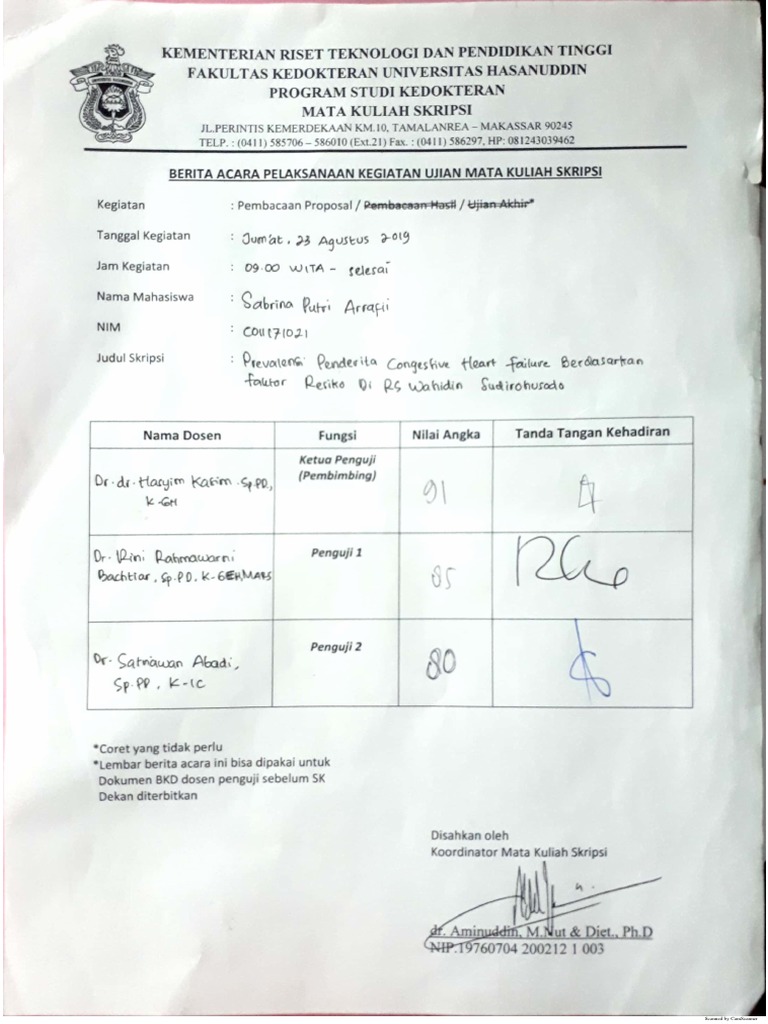 KEMENTERIAN RISET TEKNOLOGI DAN PENDIDIKAN TINGGI
FAKULTAS KEDOKTERAN UNIVERSITAS HASANUDDIN
PROGRAM STUDI KEDOKTERAN
MATA KULIAH SKRIPSI
JL.PERINTIS KEMERDEKAAN KM.10, TAMALANREA – MAKASSAR 90245
TELP. : (0411) 585706 – 586010 (Ext.21) Fax. : (0411) 586297, HP: 081243039462
BERITA ACARA PELAKSANAAN KEGIATAN UJIAN MATA KULIAH SKRIPSI
Kegiatan : Pembacaan Proposal / Pembacaan Hasil / Ujian Akhir*
Tanggal Kegiatan : Jum'at, 23 Agustus 2019
Jam Kegiatan : 09.00 WITA - selesai
Nama Mahasiswa : Sabrina Putri Arrafii
NIM : C011171021
Judul Skripsi : Prevalensi Penderita Congestive Heart Failure Berdasarkan
faktor Resiko Di RS Wahidin Sudirohusodo
Nama Dosen Fungsi Nilai Angka Tanda Tangan Kehadiran
Dr. dr. Hasyim Kasim Sp.PD, K-GH Ketua Penguji (Pembimbing) 91
Dr. Rini Rahmawarni Bachtiar, Sp.PD, K-GEH MARS Penguji 1 85
Dr. Satriawan Abadi, Sp.PD, K-IC Penguji 2 80
*Coret yang tidak perlu
*Lembar berita acara ini bisa dipakai untuk
Dokumen BKD dosen penguji sebelum SK
Dekan diterbitkan
Disahkan oleh
Koordinator Mata Kuliah Skripsi
dr. Aminuddin, M.Nut & Diet., Ph.D
NIP.19760704 200212 1 003
Scanned by CamScanner